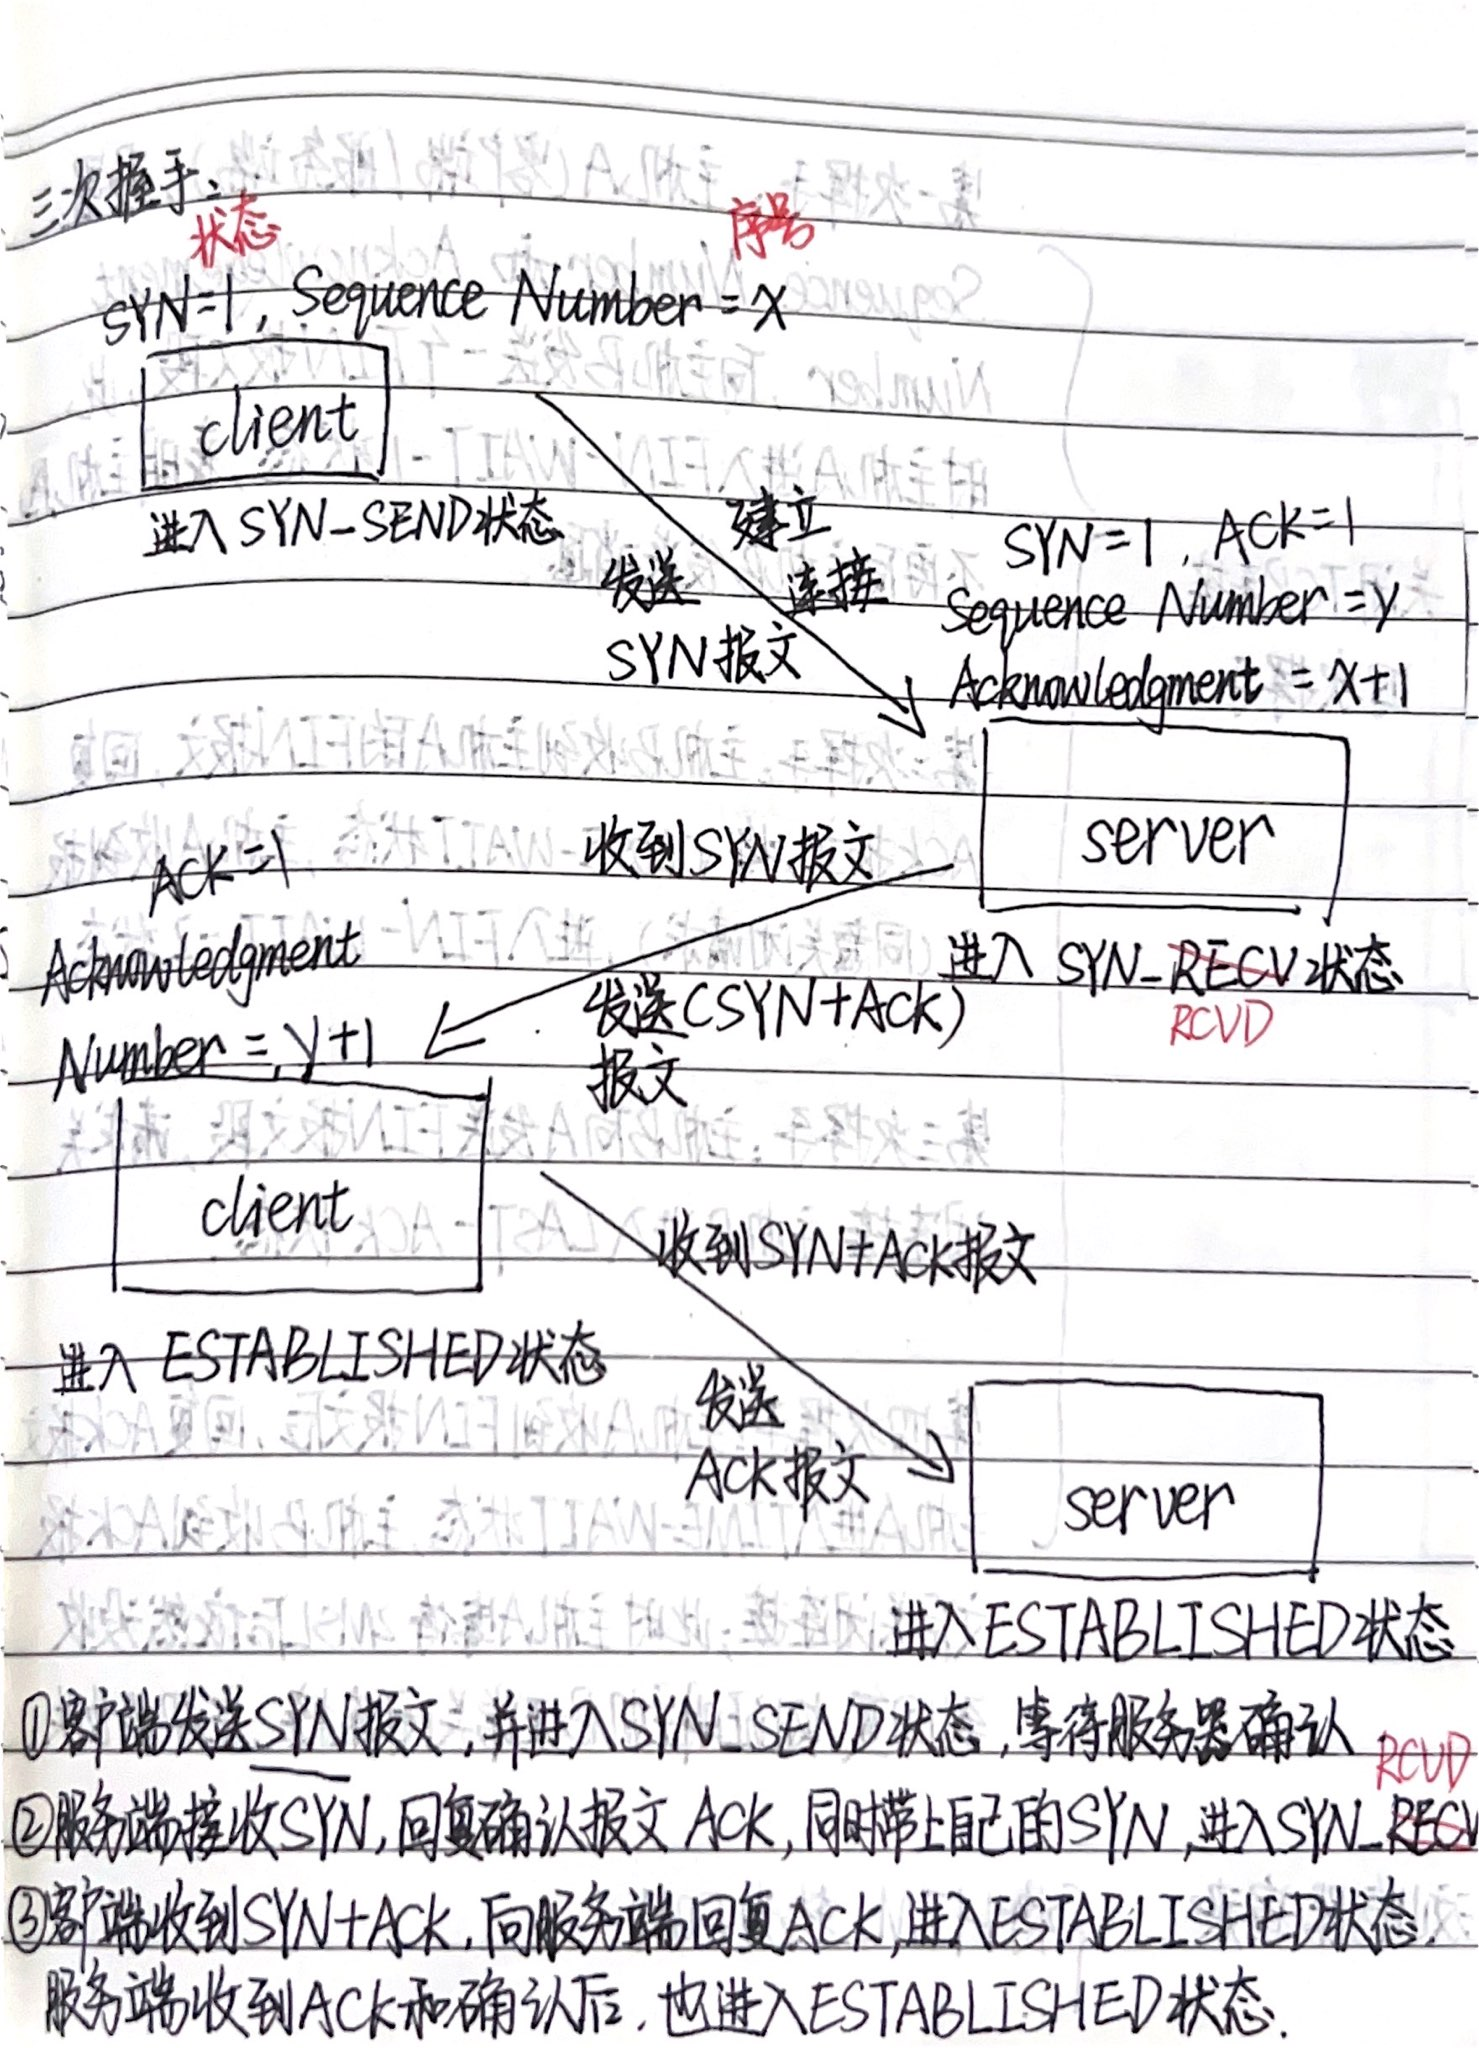 三次握手:
状态 序号
SYN=1, Sequence Number = X
client
进入SYN-SEND状态
建立
连接
发送
SYN报文
SYN=1, ACK=1
Sequence Number = Y
Acknowledgment = X+1
server
收到SYN报文
进入 SYN-RECV状态
RCVD
发送(SYN+ACK)
报文
ACK=1
Acknowledgment
Number = Y+1
client
进入 ESTABLISHED状态
收到SYN+ACK报文
发送
ACK报文
server
进入ESTABLISHED状态
①客户端发送SYN报文,并进入SYN_SEND状态,等待服务器确认
RCVD
②服务端接收SYN,回复确认报文 ACK,同时带上自己的SYN,进入SYN_RECV
③客户端收到SYN+ACK,向服务端回复ACK,进入ESTABLISHED状态.
服务端收到ACK和确认后,也进入ESTABLISHED状态.